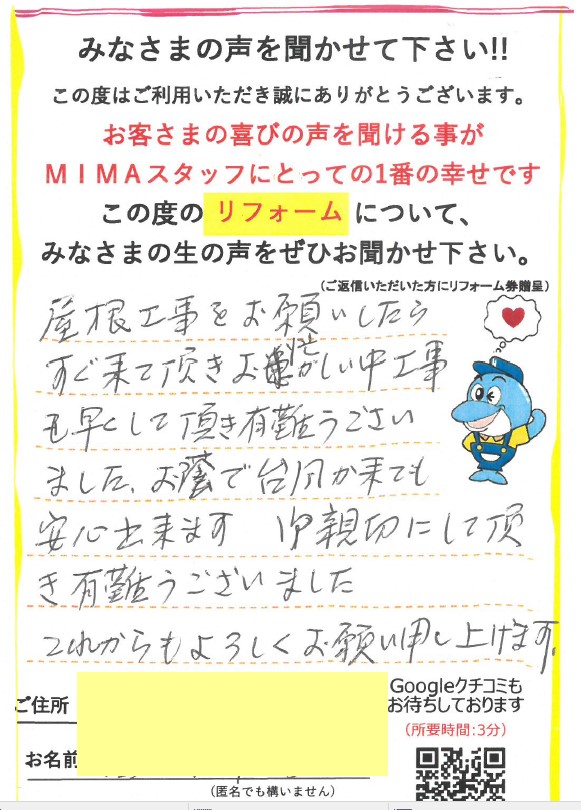 みなさまの声を聞かせて下さい!!
この度はご利用いただき誠にありがとうございます。
お客さまの喜びの声を聞ける事が
ＭＩＭＡスタッフにとっての1番の幸せです
この度の リフォーム について、
みなさまの生の声をぜひお聞かせ下さい。
(ご返信いただいた方にリフォーム券贈呈)
屋根工事をお願いしたら
すぐ来て頂きお忙がしい中工事
も早くして頂き有難うござい
ました、お蔭で台風が来ても
安心出来ます 御親切にして頂
き有難うございました
これからもよろしくお願い申し上げます。
Googleクチコミも
お待ちしております
(所要時間:3分)
ご住所
お名前
(匿名でも構いません)